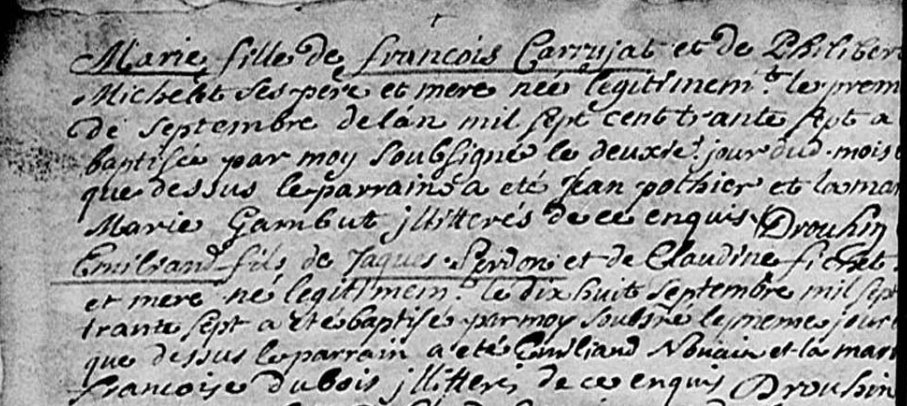 Marie fille de françois Carrujat et de Philiber
Michelet ses père et mere née legitimem.t le prem
de septembre de lán mil sept cent trante sept a
baptisée par moy soubsigné le deuxie.e jour dud. mois
que dessus le parrain a eté Jean pothier et la mar
Marie Gambut jllitterés de ce enquis Drouhin
Emiliand fils de Jaques Perdon et de Claudine fichet
et mere né legitimem.t le dix huit septembre mil sept
trante sept a eté baptisé par moy soubsre le meme jour
que dessus le parrain a eté Emiliand Nouain et la marr
francoise dubois jllitterés de ce enquis Drouhin